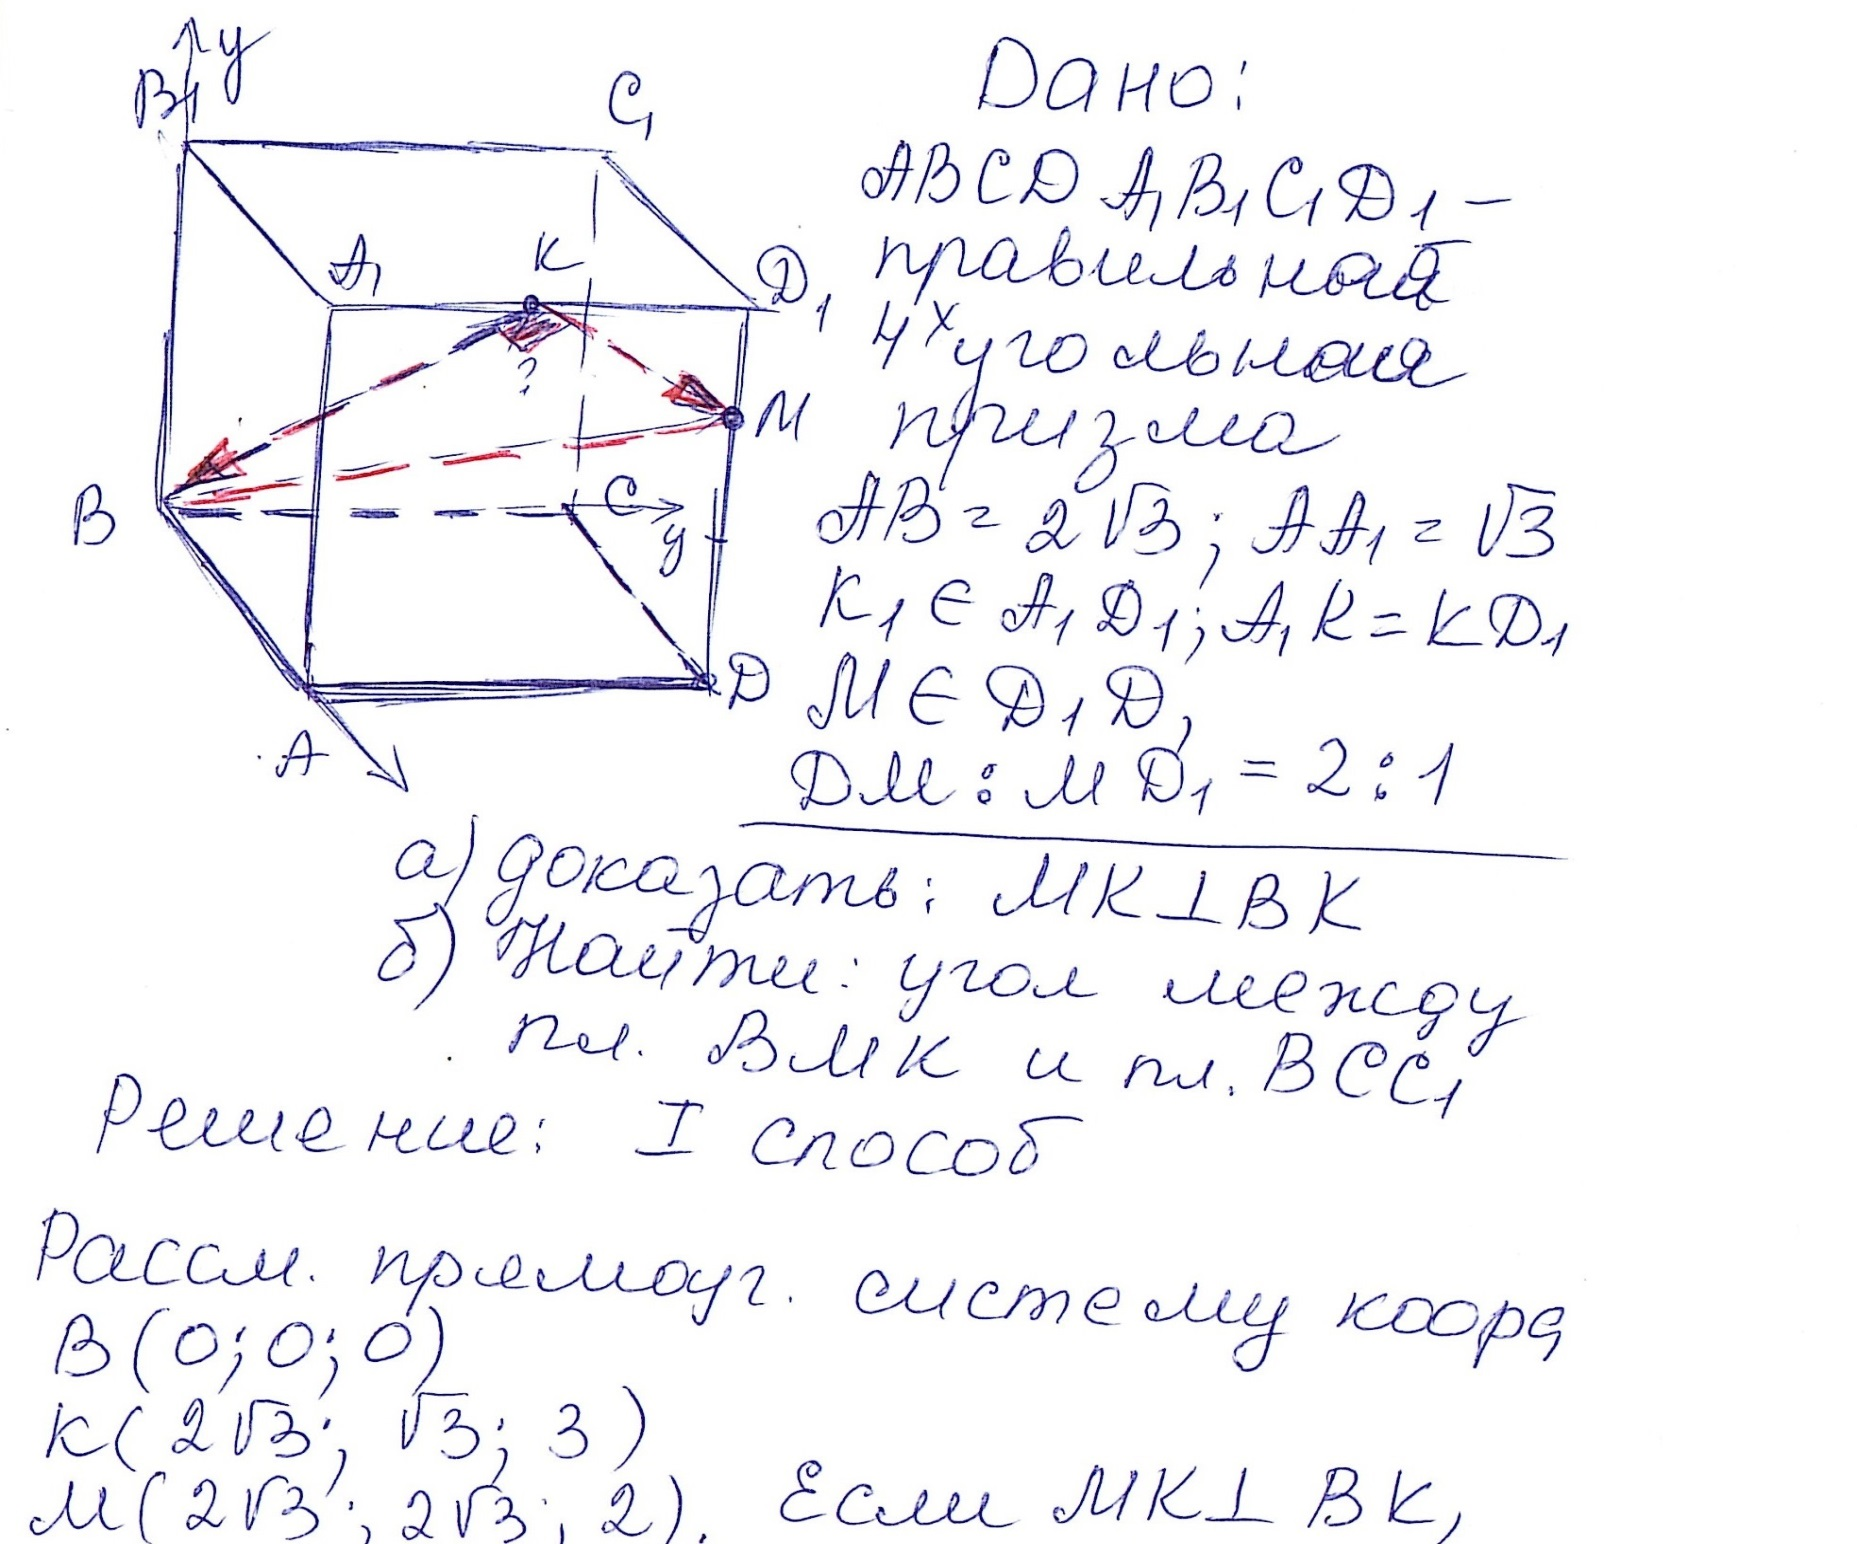 y
B1
C1
A1
K
D1
?
M
B
C
y
D
A
Дано:
ABCD A1B1C1D1 –
правильная
4х угольная
призма
AB = 2√3; AA1 = √3
K1 ∈ A1D1; A1K = KD1
M ∈ D1D,
DM : MD1 = 2 : 1
а) доказать: MK ⊥ BK
б) Найти: угол между
пл. BMK и пл. BCC1
Решение: I способ
Рассм. прямоуг. систему коорд
B(0; 0; 0)
K(2√3; √3; 3)
M(2√3; 2√3; 2). Если MK ⊥ BK,